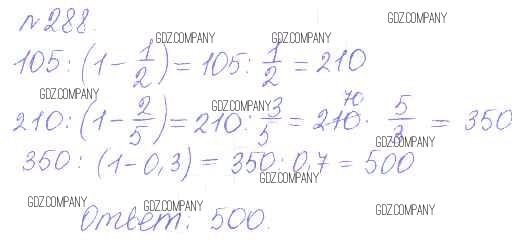 №288. GDZ.COMPANY
GDZ.COMPANY GDZ.COMPANY
105 : (1 - 1/2) = 105 : 1/2 = 210
GDZ.COMPANY GDZ.COMPANY
210 : (1 - 2/5) = 210 : 3/5 = 210 70 · 5/3 = 350
GDZ.COMPANY
350 : (1 - 0,3) = 350 : 0,7 = 500
GDZ.COMPANY
GDZ.COMPANY GDZ.COMPANY GDZ.COMPANY
Ответ: 500.